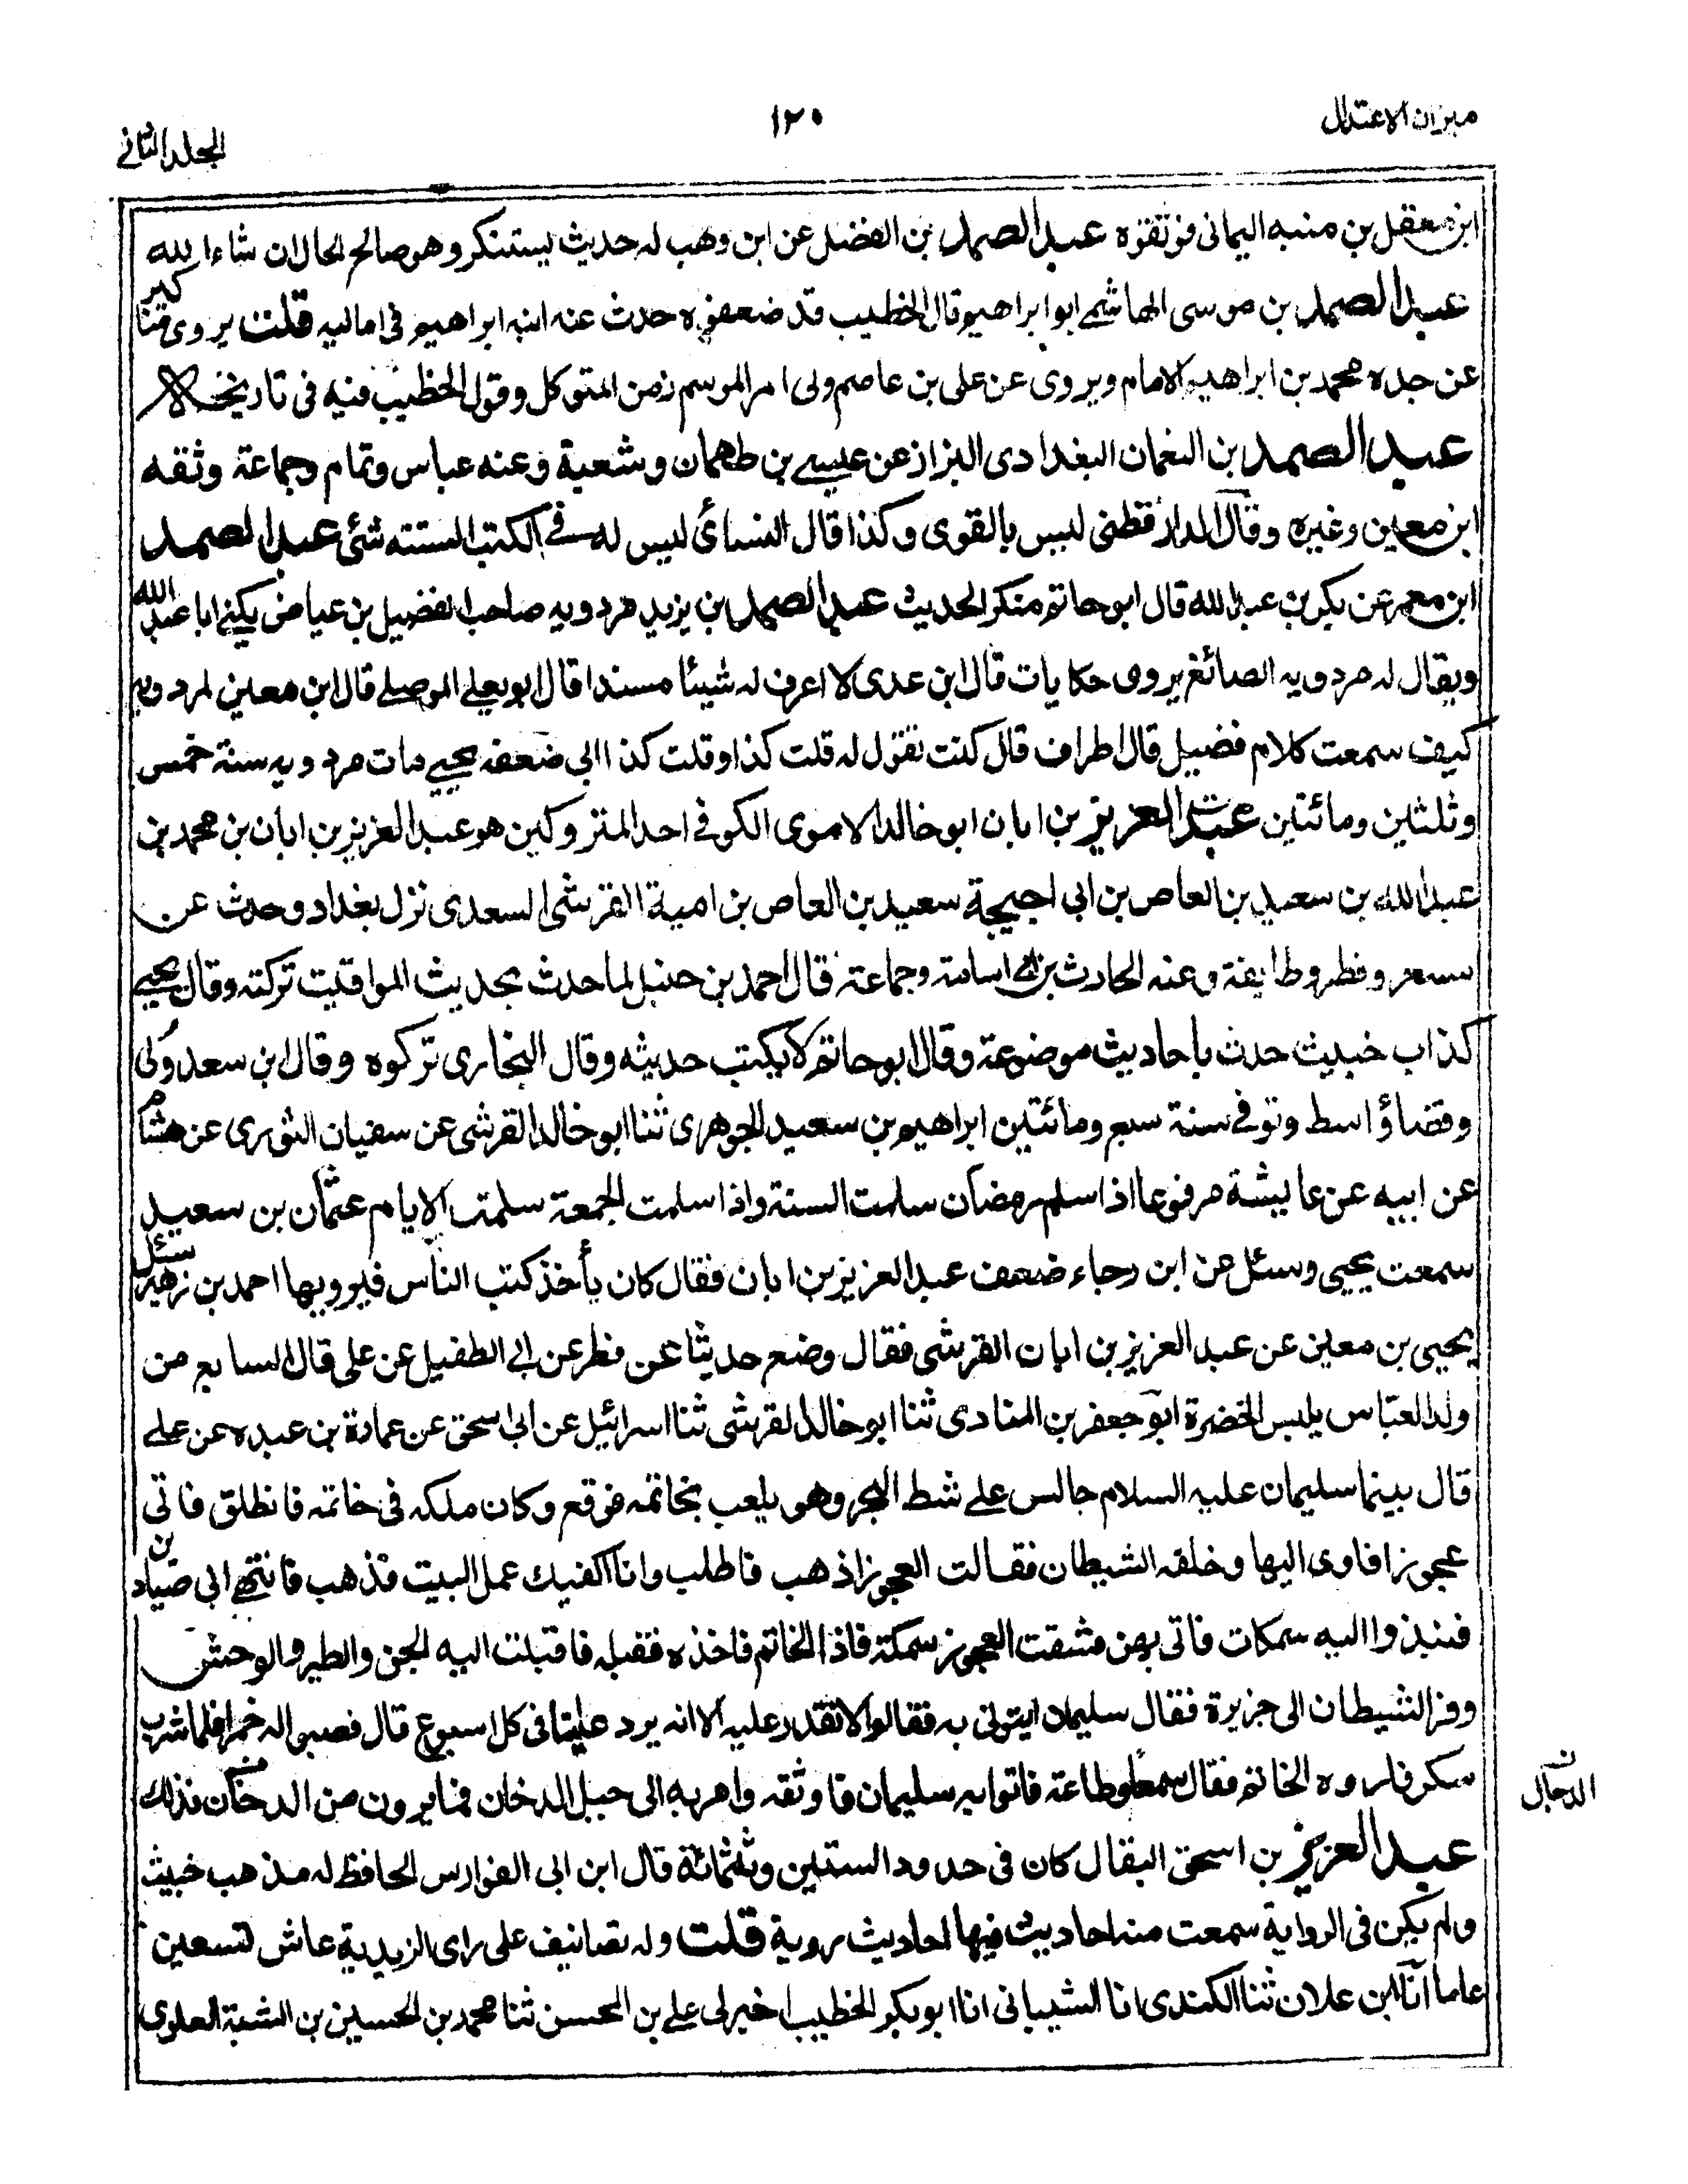 ميزان الاعتدال
١٢٠
الجلد الثاني
ابن معقل بن منبه اليمانى فوثقوه عبد الصمد بن الفضل عن ابن وهب له حديث يستنكر وهو صالح الحال ان شاء الله
عبد الصمد بن موسى الهاشمے ابو ابراهيم قال الخطيب قد ضعفوه حدث عنه ابنه ابراهيم فى اماليه قلت يروى مناكير
عن جده محمد بن ابراهيم الامام ويروى عن على بن عاصم ولى امر الموسم زمن المتوكل وقول الخطيب فيه فى تاريخه
عبد الصمد بن النعمان البغدادى البزاز عن عيسے بن طهمان وشعبة وعنه عباس وتمام وجماعة وثقه
ابن معين وغيره وقال الدارقطنى ليس بالقوى وكذا قال النسائى ليس له فے الكتب الستته شئ عبد الصمد
ابن معمر عن بكر بن عبد الله قال ابو حاتم منكر الحديث عبد الصمد بن يزيد مردويه صاحب الفضيل بن عياض يكنے ابا عبد الله
ويقال له مردويه الصائغ يروى حكايات قال ابن عدى لا اعرف له شيئا مسندا قال ابو يعلے الموصلے قال ابن معين لمردويه
كيف سمعت كلام فضيل قال اطراف قال كنت تقول له قلت كذا وقلت كذا ابى ضعفه يحيے مات مردويه سنة خمس
وثلثين ومائتين عبد العزيز بن ابان ابو خالد الاموى الكوفے احد المتروكين هو عبد العزيز بن ابان بن محمد بن
عبد الله بن سعيد بن العاص بن ابى احيحة سعيد بن العاص بن امية القرشى السعدى نزل بغداد وحدث عن
مسعر وفطر وطايفة وعنه الحارث بن ابى اسامة وجماعة قال احمد بن حنبل لما حدث بحديث المواقيت تركته وقال يحيے
كذاب خبيث حدث باحاديث موضوعة وقال ابو حاتم لا يكتب حديثه وقال البخارى تركوه وقال ابن سعد ولى
وقضاؤ اسط وتوفے سنة سبع ومائتين ابراهيم بن سعيد الجوهرى ثنا ابو خالد القرشى عن سفيان الثورى عن هشام
عن ابيه عن عايشة مرفوعا اذا سلم رمضان سلمت السنة واذا سلمت الجمعة سلمت الايام عثمان بن سعيد
سمعت يحيى وسئل عن ابن رجاء ضعف عبد العزيز بن ابان فقال كان يأخذ كتب الناس فيرويها احمد بن زهير سئل
يحيى بن معين عن عبد العزيز بن ابان القرشى فقال وضع حديثا عن فطر عن ابى الطفيل عن على قال السابع من
ولد العباس يلبس الخضرة ابو جعفر بن المنادى ثنا ابو خالد القرشى ثنا اسرائيل عن ابى اسحق عن عمارة بن عبده عن علے
قال بينما سليمان عليه السلام جالس علے شط البحر وهو يلعب بخاتمه فوقع وكان ملكه فى خاتمه فانطلق فاتى
عجوزا فاوى اليها وخلفه الشيطان فقالت العجوز اذهب فاطلب وانا اكفيك عمل البيت فذهب فانتهے الى صيادين
فنبذوا اليه سمكات فاتى بهن فشقت العجوز سمكة فاذا الخاتم فاخذه فقبله فاقبلت اليه الجن والطير والوحش
وفر الشيطان الى جزيرة فقال سليمان ايتونى به فقالوا لا نقدر عليه الا انه يرد علينا فى كل اسبوع قال فصبوا له خمرا فلما شرب
سكر فاروه الخاتم فقال سمعا وطاعة فاتوا به سليمان فاوثقه وامر به الى جبل الدخان فما يرون من الدخان فذلك
ن
الدجال
عبد العزيز بن اسحق البقال كان فى حدود الستين وثلثمائة قال ابن ابى الفوارس الحافظ له مذهب خبيث
ولم يكن فى الرواية سمعت منه احاديث فيها احاديث روية قلت وله تصانيف على راى الزيدية عاش تسعين
عاما انا ابن علان ثنا الكندى انا الشيبانى انا ابو بكر الخطيب اخبرنى علے بن المحسن ثنا محمد بن الحسين بن الشبة العلوى